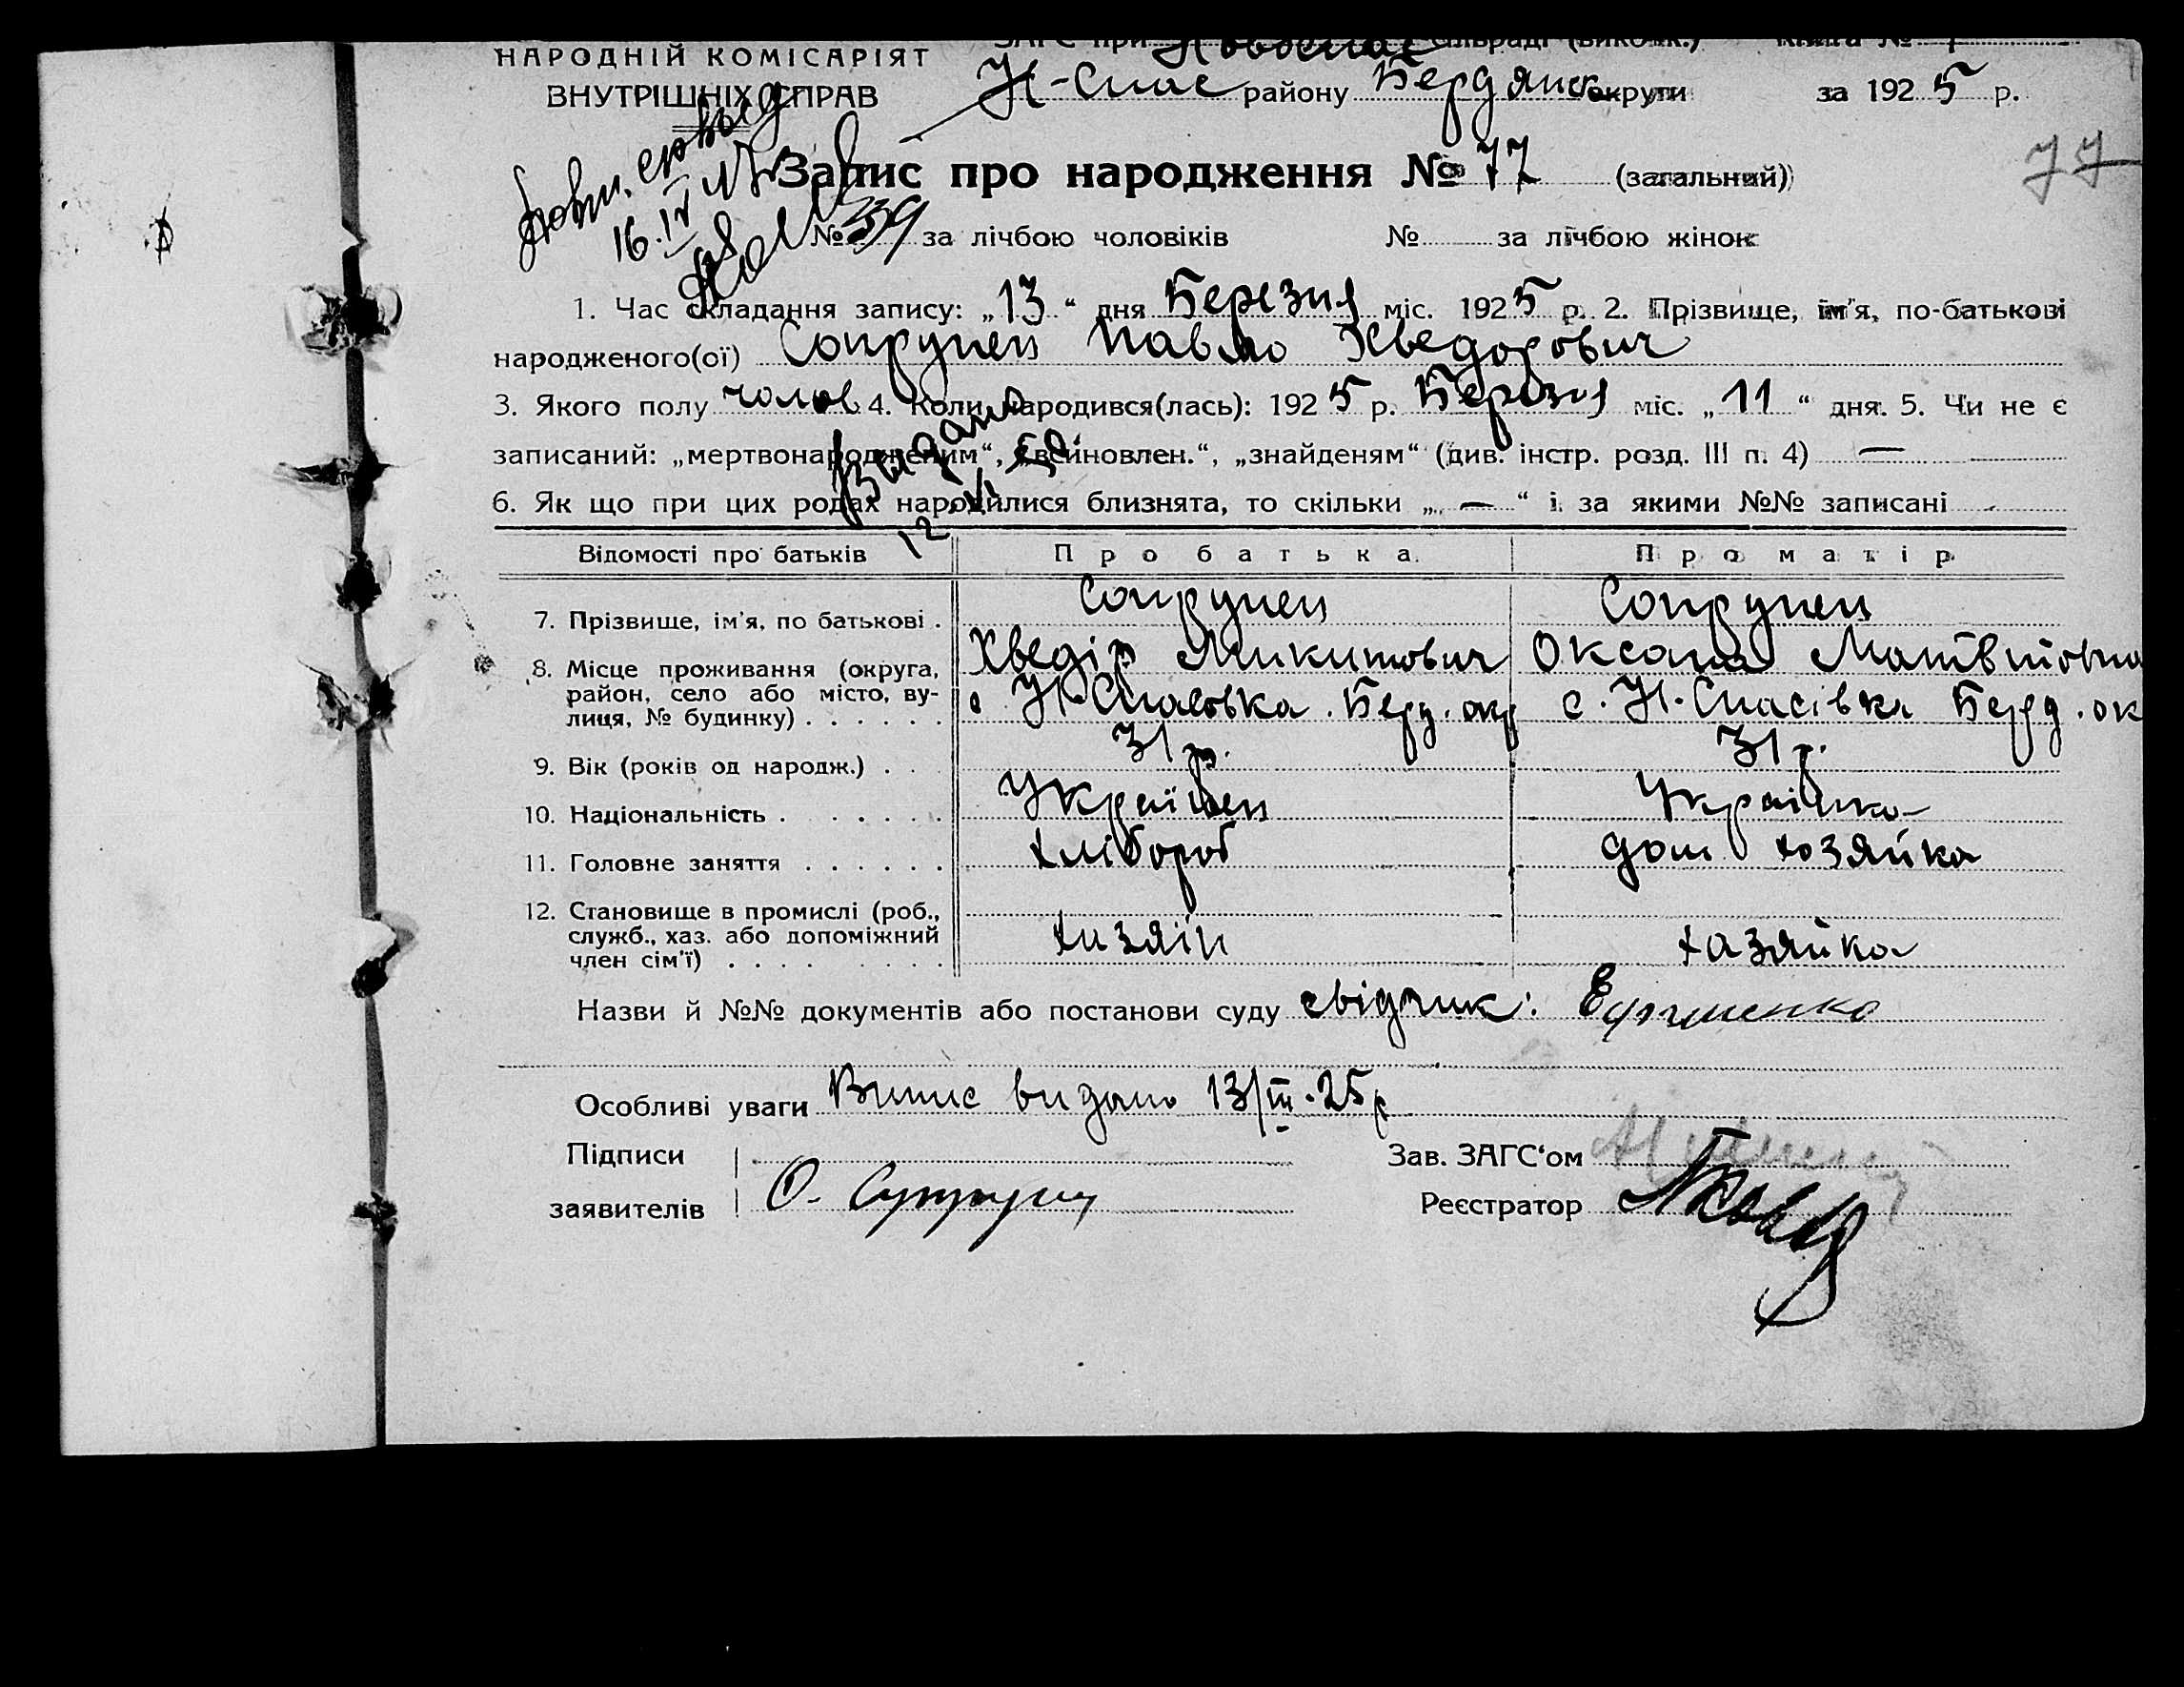 НАРОДНІЙ КОМІСАРІЯТ
ВНУТРІШНІХ СПРАВ
ЗАГС при Новоспас сільраді (виконк.) Книга № 1
Н-Спас району Бердянськ округи за 1925 р.
77
Запис про народження № 77 (загальний)
№ 39 за лічбою чоловіків № за лічбою жінок
1. Час складання запису: „13“ дня Березня міс. 1925 р. 2. Прізвище, ім'я, по-батькові
народженого(ої) Сопрунец Павло Хведорович
3. Якого полу чолов. 4. Коли народився(лась): 1925 р. Березня міс. „11“ дня. 5. Чи не є
записаний: „мертвонародженим“, „всиновлен.“, „знайденям“ (див. інстр. розд. III п. 4) —
6. Як що при цих родах народилися близнята, то скільки „—“ і за якими №№ записані
Відомості про батьків Про батька Про матір
7. Прізвище, ім'я, по батькові . Сопрунец Сопрунец
Хведір Микитович Оксана Матвиівна
8. Місце проживання (округа, район, село або місто, вулиця, № будинку) . . . . . . с Н-Спасовка. Берд. окр с. Н.-Спасівка Берд. ок
9. Вік (років од народж.) . . . 31 р. 31 р.
10. Національність . . . . . . Українец Українка
11. Головне заняття . . . . . . хлібороб дом хозяйка
12. Становище в промислі (роб., служб., хаз. або допоміжний член сім'ї) . . . . . . . . хазяін хазяйка
Назви й №№ документів або постанови суду свідчик:
Особливі уваги Випис видано 13/III-25р
Підписи Зав. ЗАГС‘ом
заявителів О. Супрунец Реєстратор
Повт. 
16.IV
Выдано
12 VI